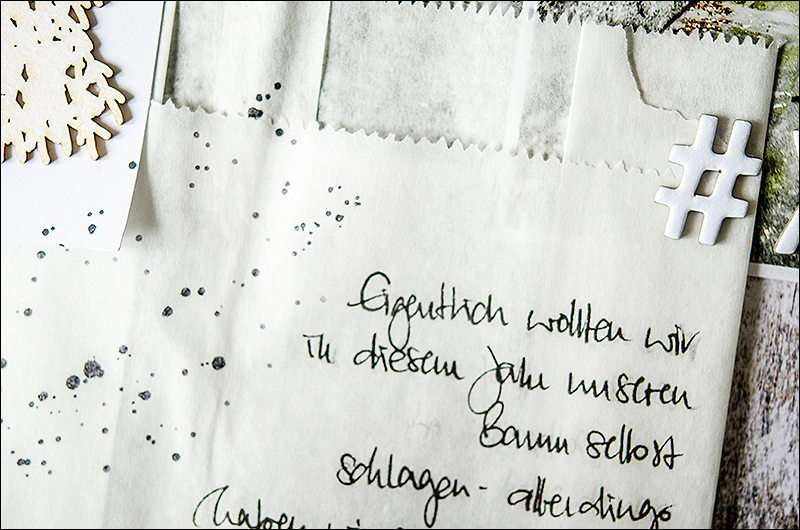 #
Eigentlich wollten wir
in diesem Jahr unseren
Baum selbst
schlagen - allerdings
haben